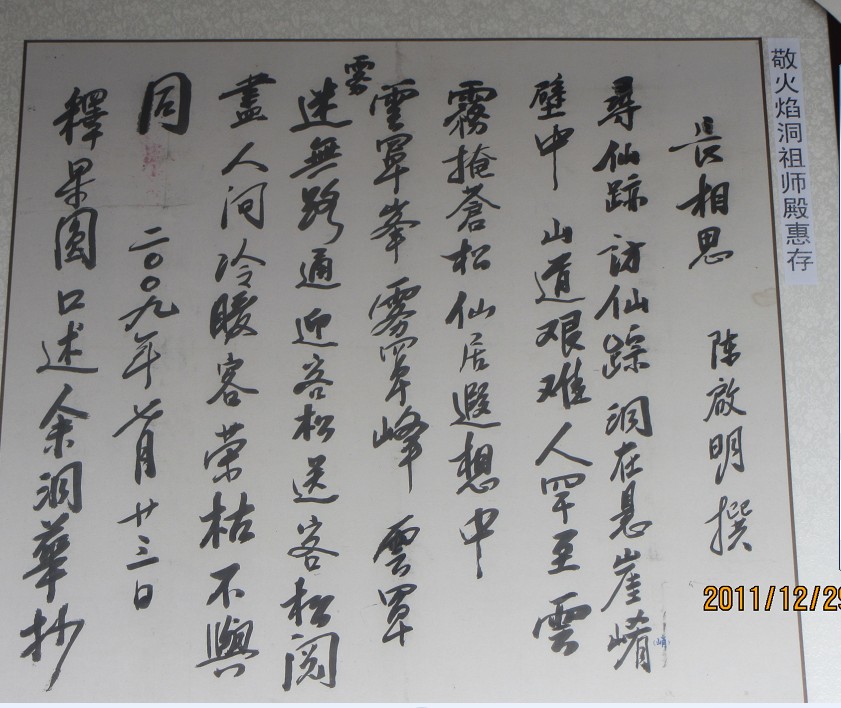 敬火焰洞祖师殿惠存
長相思 陈啟明撰
尋仙跡访仙踪洞在悬崖峭
(峭)
壁中 山道艰难人罕至 雲
霧掩蒼松仙居遐想中
雲罩峯 雾罩峰 雲罩
雾
迷無路通迎客松送客松阅
盡人间冷暖客荣枯不與
同
二〇〇九年七月廿三日
釋果圆口述余洞華抄
2011/12/29